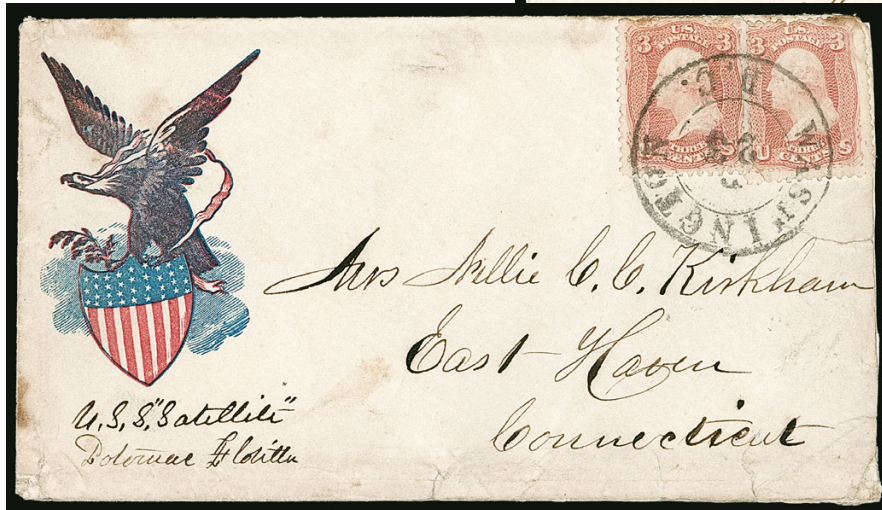 U.S. POSTAGE
3 3
THREE CENTS
U S
U.S. POSTAGE
3 3
THREE CENTS
U S
WASHINGTON D.C.
Mrs Nellie C. C. Kirkham
East Haven
Connecticut
U.S.S. "Satellite"
Potomac Flotilla